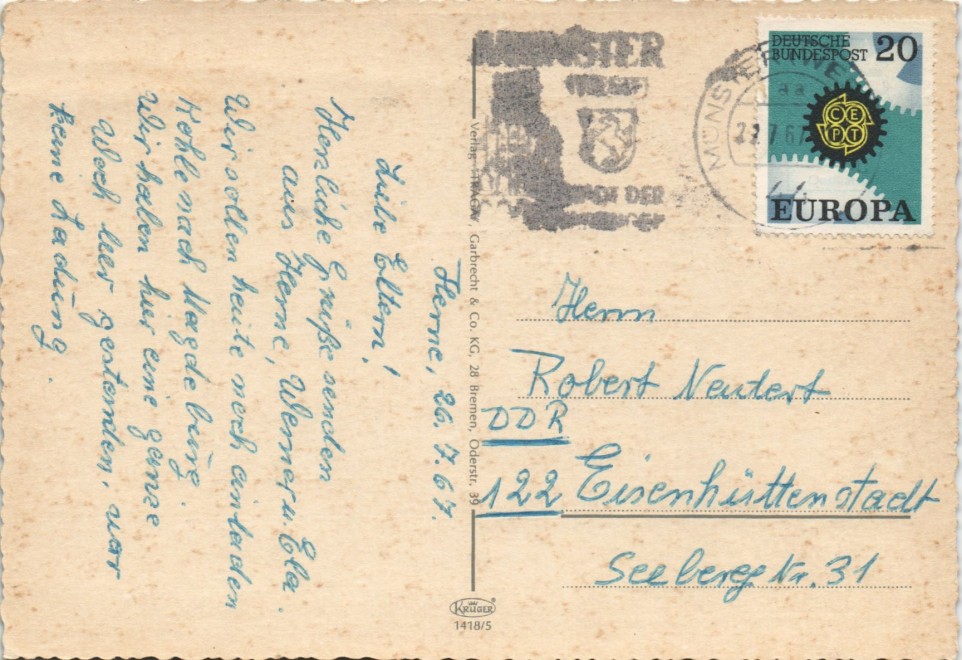 Herne, 26.7.67.
Liebe Eltern!
Herzliche Grüße senden
aus Herne, Werner u. Ela.
Wir sollen heute noch einladen
Kohle nach Magdeburg.
Wir haben hier eine ganze
Woch hier gestanden. war
keine Ladung.
Verlag
Garbrecht & Co. KG, 28 Bremen, Oderstr. 39
KRÜGER
1418/5
MÜNSTER
DER
MÜNSTER
7.67
DEUTSCHE
BUNDESPOST 20
CEPT
EUROPA
Herrn
Robert Neutert
DDR
122 Eisenhüttenstadt
Seeberge Nr. 31